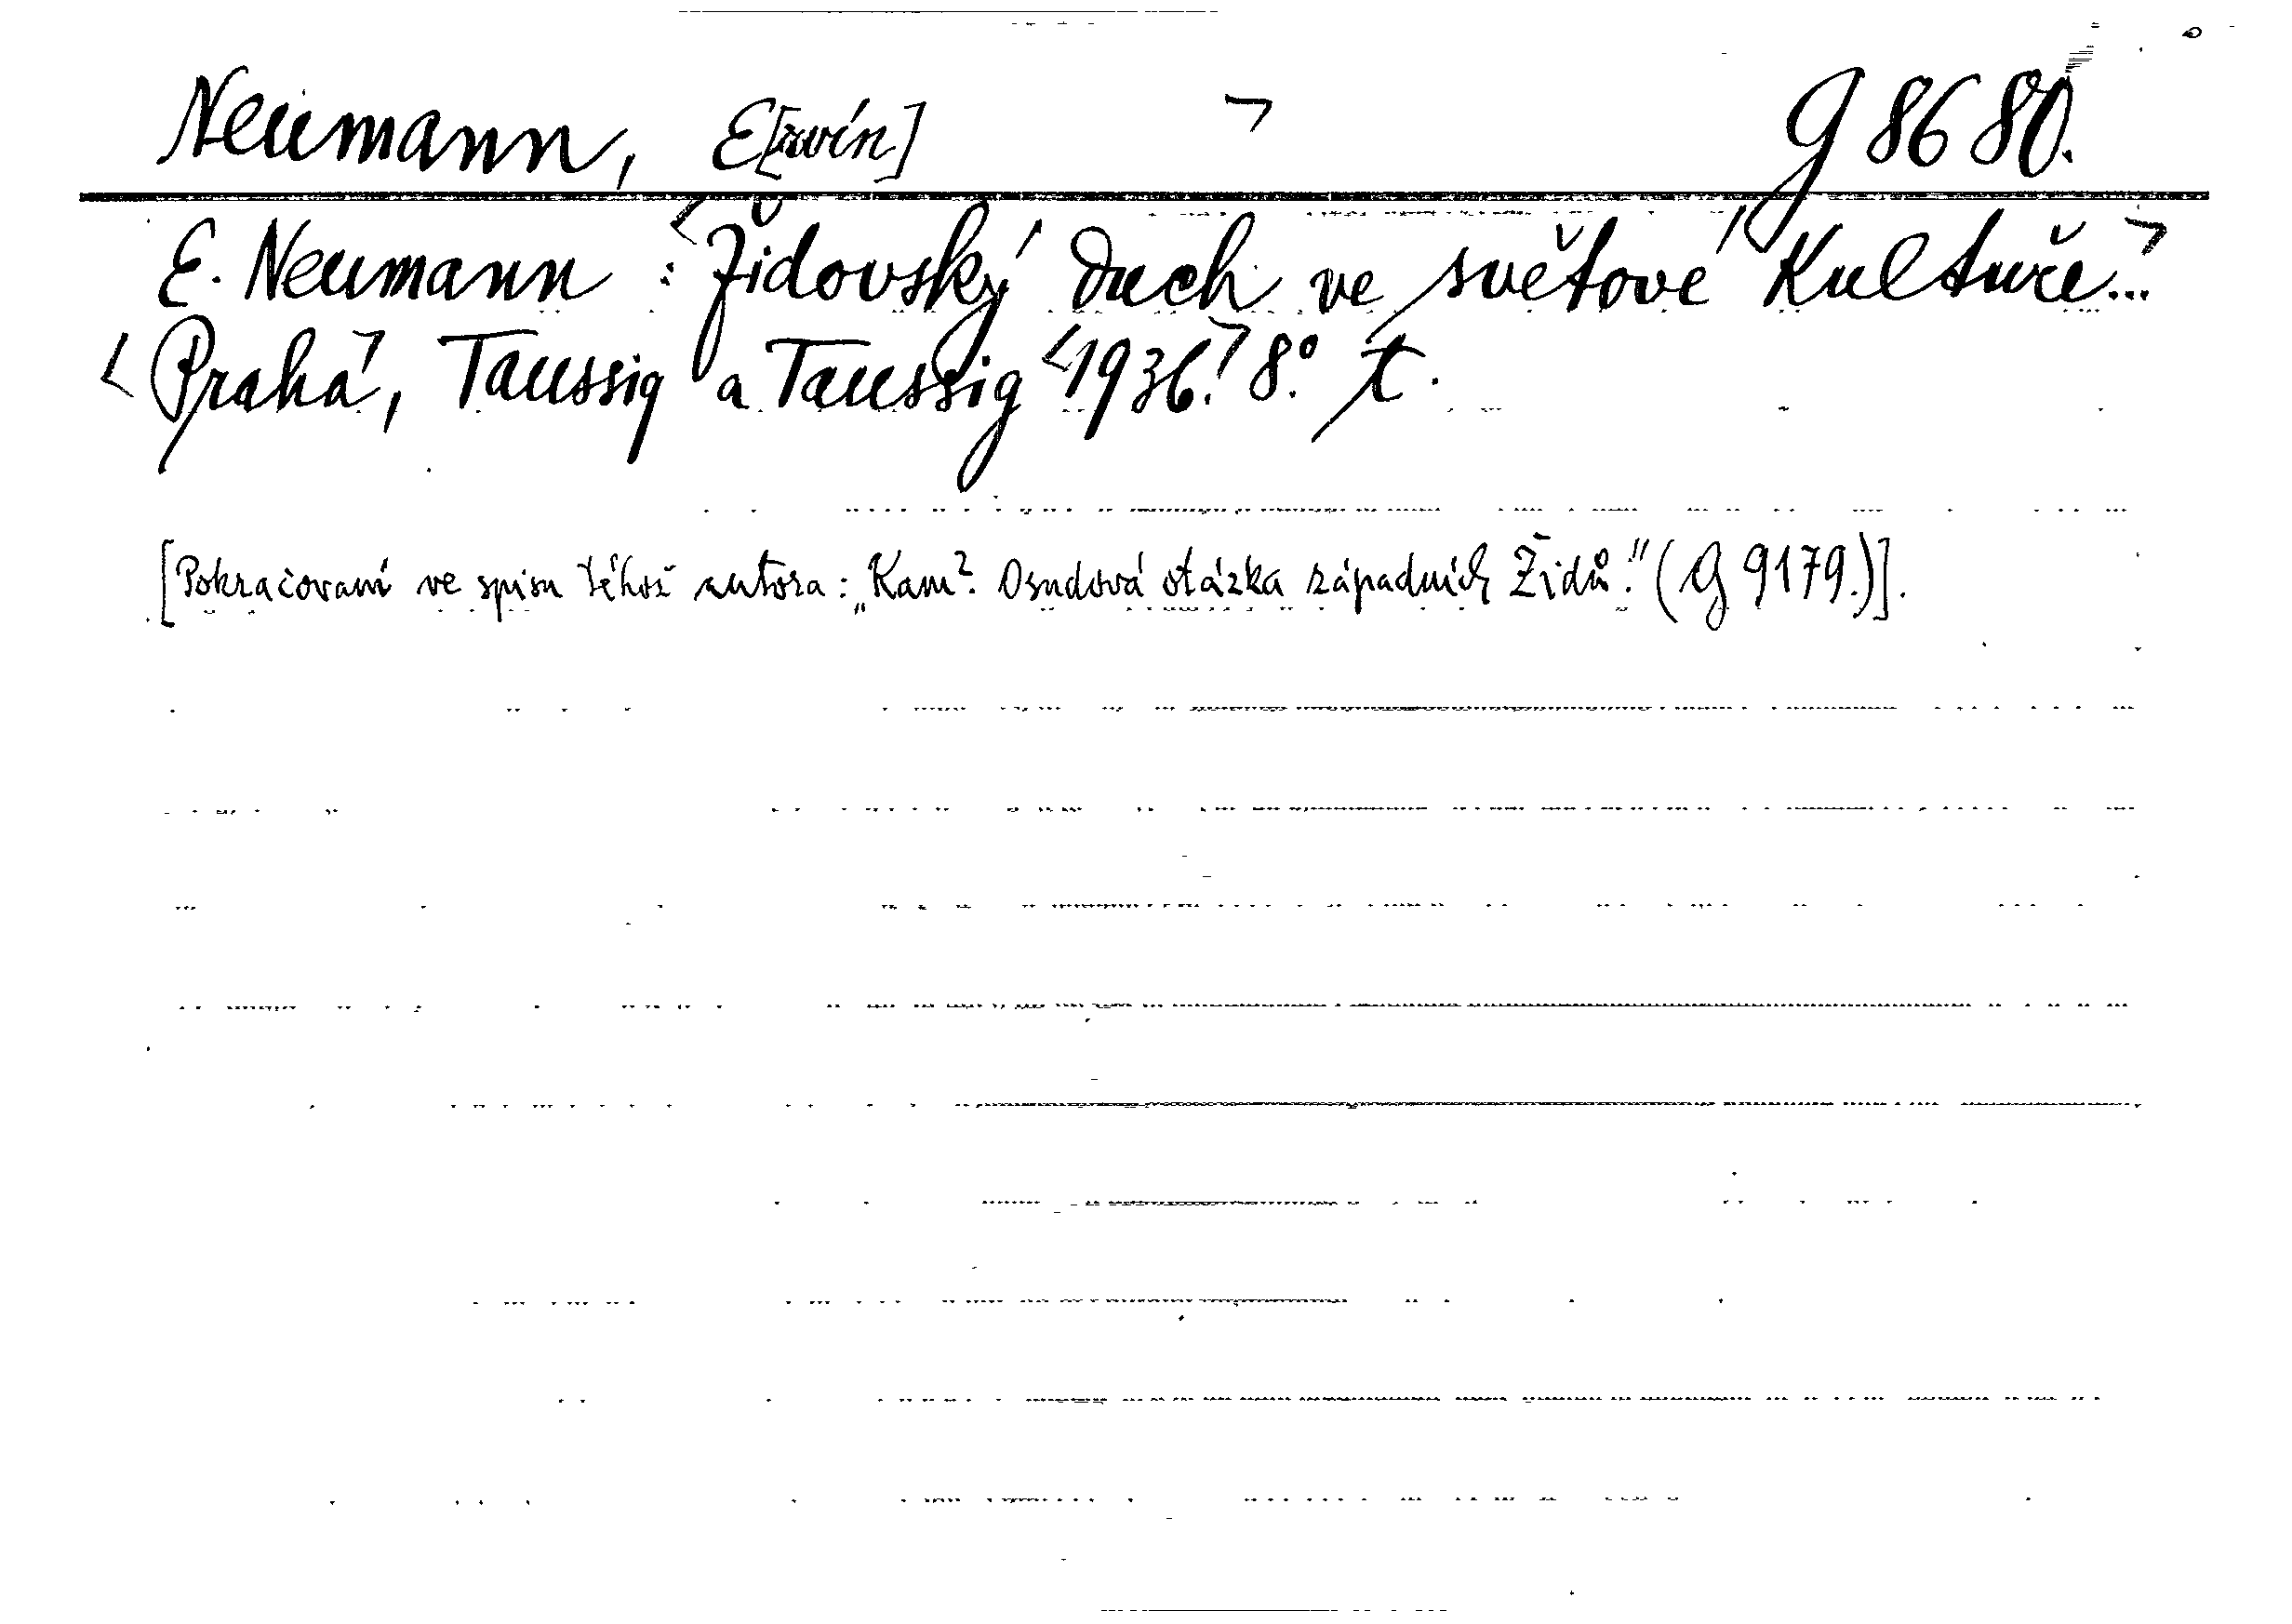 Neumann, E[rwín] ┐ G 8680.
E. Neumann : <Židovský duch ve světové kultuře...┐
<Praha┐, Taussig a Taussig <1936.┐ 8.° t.
[Pokračovaní ve spisu téhož autora: „Kam? Osudová otázka západních Židů." (G 9179.)].